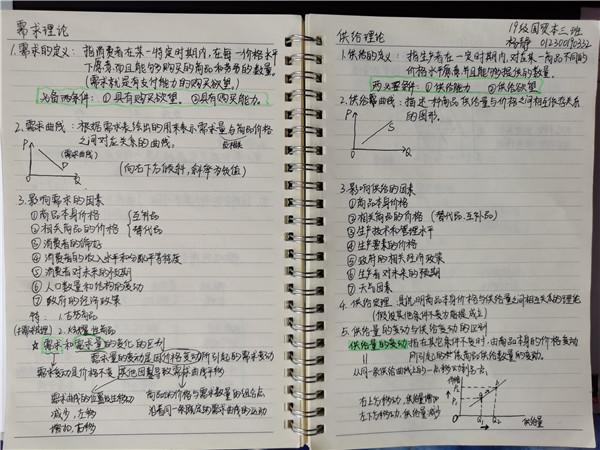 需求理论
1.需求的定义：指消费者在某一特定时期内，在每一价格水平
下愿意而且能够购买的商品和劳务的数量。
(需求就是有支付能力的购买欲望。)
必备两条件：①具有购买欲望。②具有购买能力。
2.需求曲线：根据需求表绘出的用来表示需求量与商品价格
之间对应关系的曲线。
P
(需求曲线)
D
Q
(向右下方倾斜，斜率为负值)
3.影响需求的因素
①商品本身价格
②相关商品的价格 {互补品 替代品
③消费者的偏好
④消费者的收入水平和分配平等程度
⑤消费者对未来的预期
⑥人口数量和结构的变动
⑦政府的经济政策
特： 1.吉芬商品
(需求规律) 2.炫耀性商品
☆需求和需求量的变化的区别
需求量的变动是因价格变动所引起的需求变动
需求变动是价格不变，其他因素导致需求曲线平移
需求曲线的位置发生移动
减少，左移
增加，右移
商品的价格与需求数量的组合点
沿着同一条既定的需求曲线的运动
供给理论
19级国贸本三班
012300190332
1.供给的定义：指生产者在一定时期内，对某一商品不同的
价格水平愿意并且能够提供的数量。
两必要条件：①供给能力 ②供给欲望
2.供给曲线：描述一种商品供给量与价格之间相互依存关系
的图形。
P
S
Q
3.影响供给的因素
①商品本身价格
②相关商品的价格 (替代品、互补品)
③生产技术和管理水平
④生产要素的价格
⑤政府的相关经济政策
⑥生产者对未来的预期
⑦天气因素
4.供给定理：是说明商品本身价格与供给量之间相互关系的理论
(假设其他条件不变为前提成立)
5.供给量的变动与供给变动的区别
供给量的变动指在其它条件不变时，由商品本身的价格变动
所引起的厂商商品供给数量的变动。
从同一条供给曲线上的一点移动到另一点。
右上方移动，供给量增加
左下方移动，供给量减少
价格
P₂
P₁
Q₁ Q₂
供给量